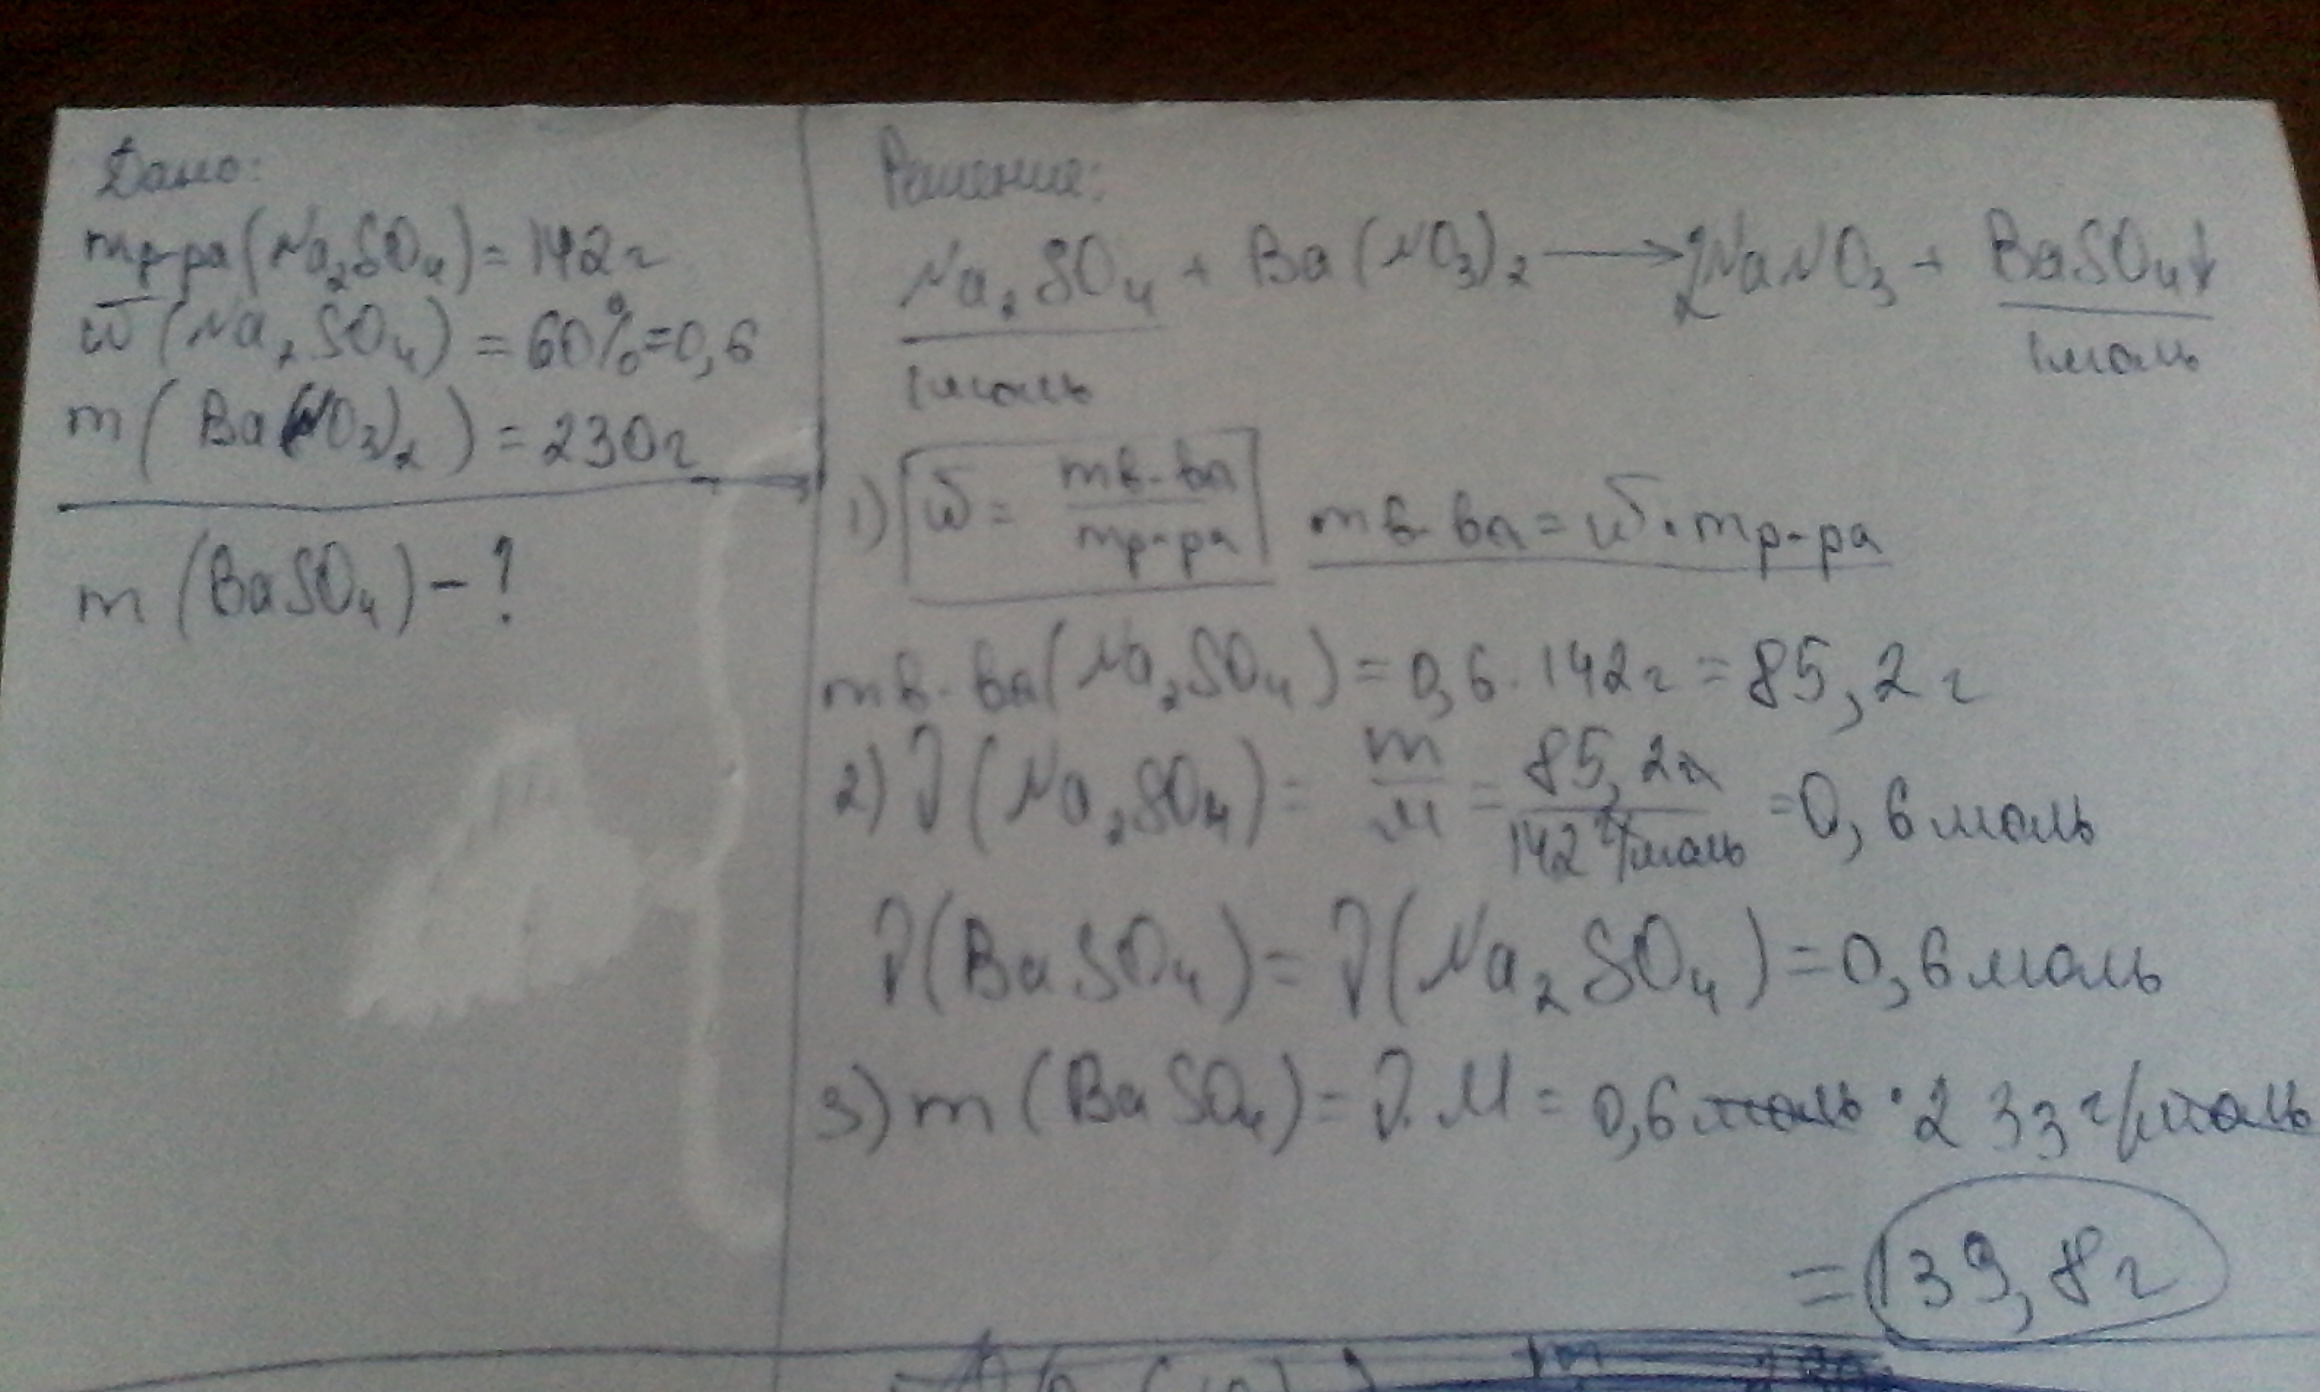 Дано:
mр-ра(Na₂SO₄) = 142г
ω(Na₂SO₄) = 60% = 0,6
m(Ba(NO₃)₂) = 230г
m(BaSO₄) - ?
Решение:
Na₂SO₄ + Ba(NO₃)₂ → 2NaNO₃ + BaSO₄↓
1моль 1моль
1) ω = mв-ва/mр-ра mв-ва = ω · mр-ра
mв-ва(Na₂SO₄) = 0,6 · 142г = 85,2г
2) ν(Na₂SO₄) = m/M = 85,2г/142г/моль = 0,6моль
ν(BaSO₄) = ν(Na₂SO₄) = 0,6моль
3) m(BaSO₄) = ν · M = 0,6моль · 233г/моль
= 139,8г